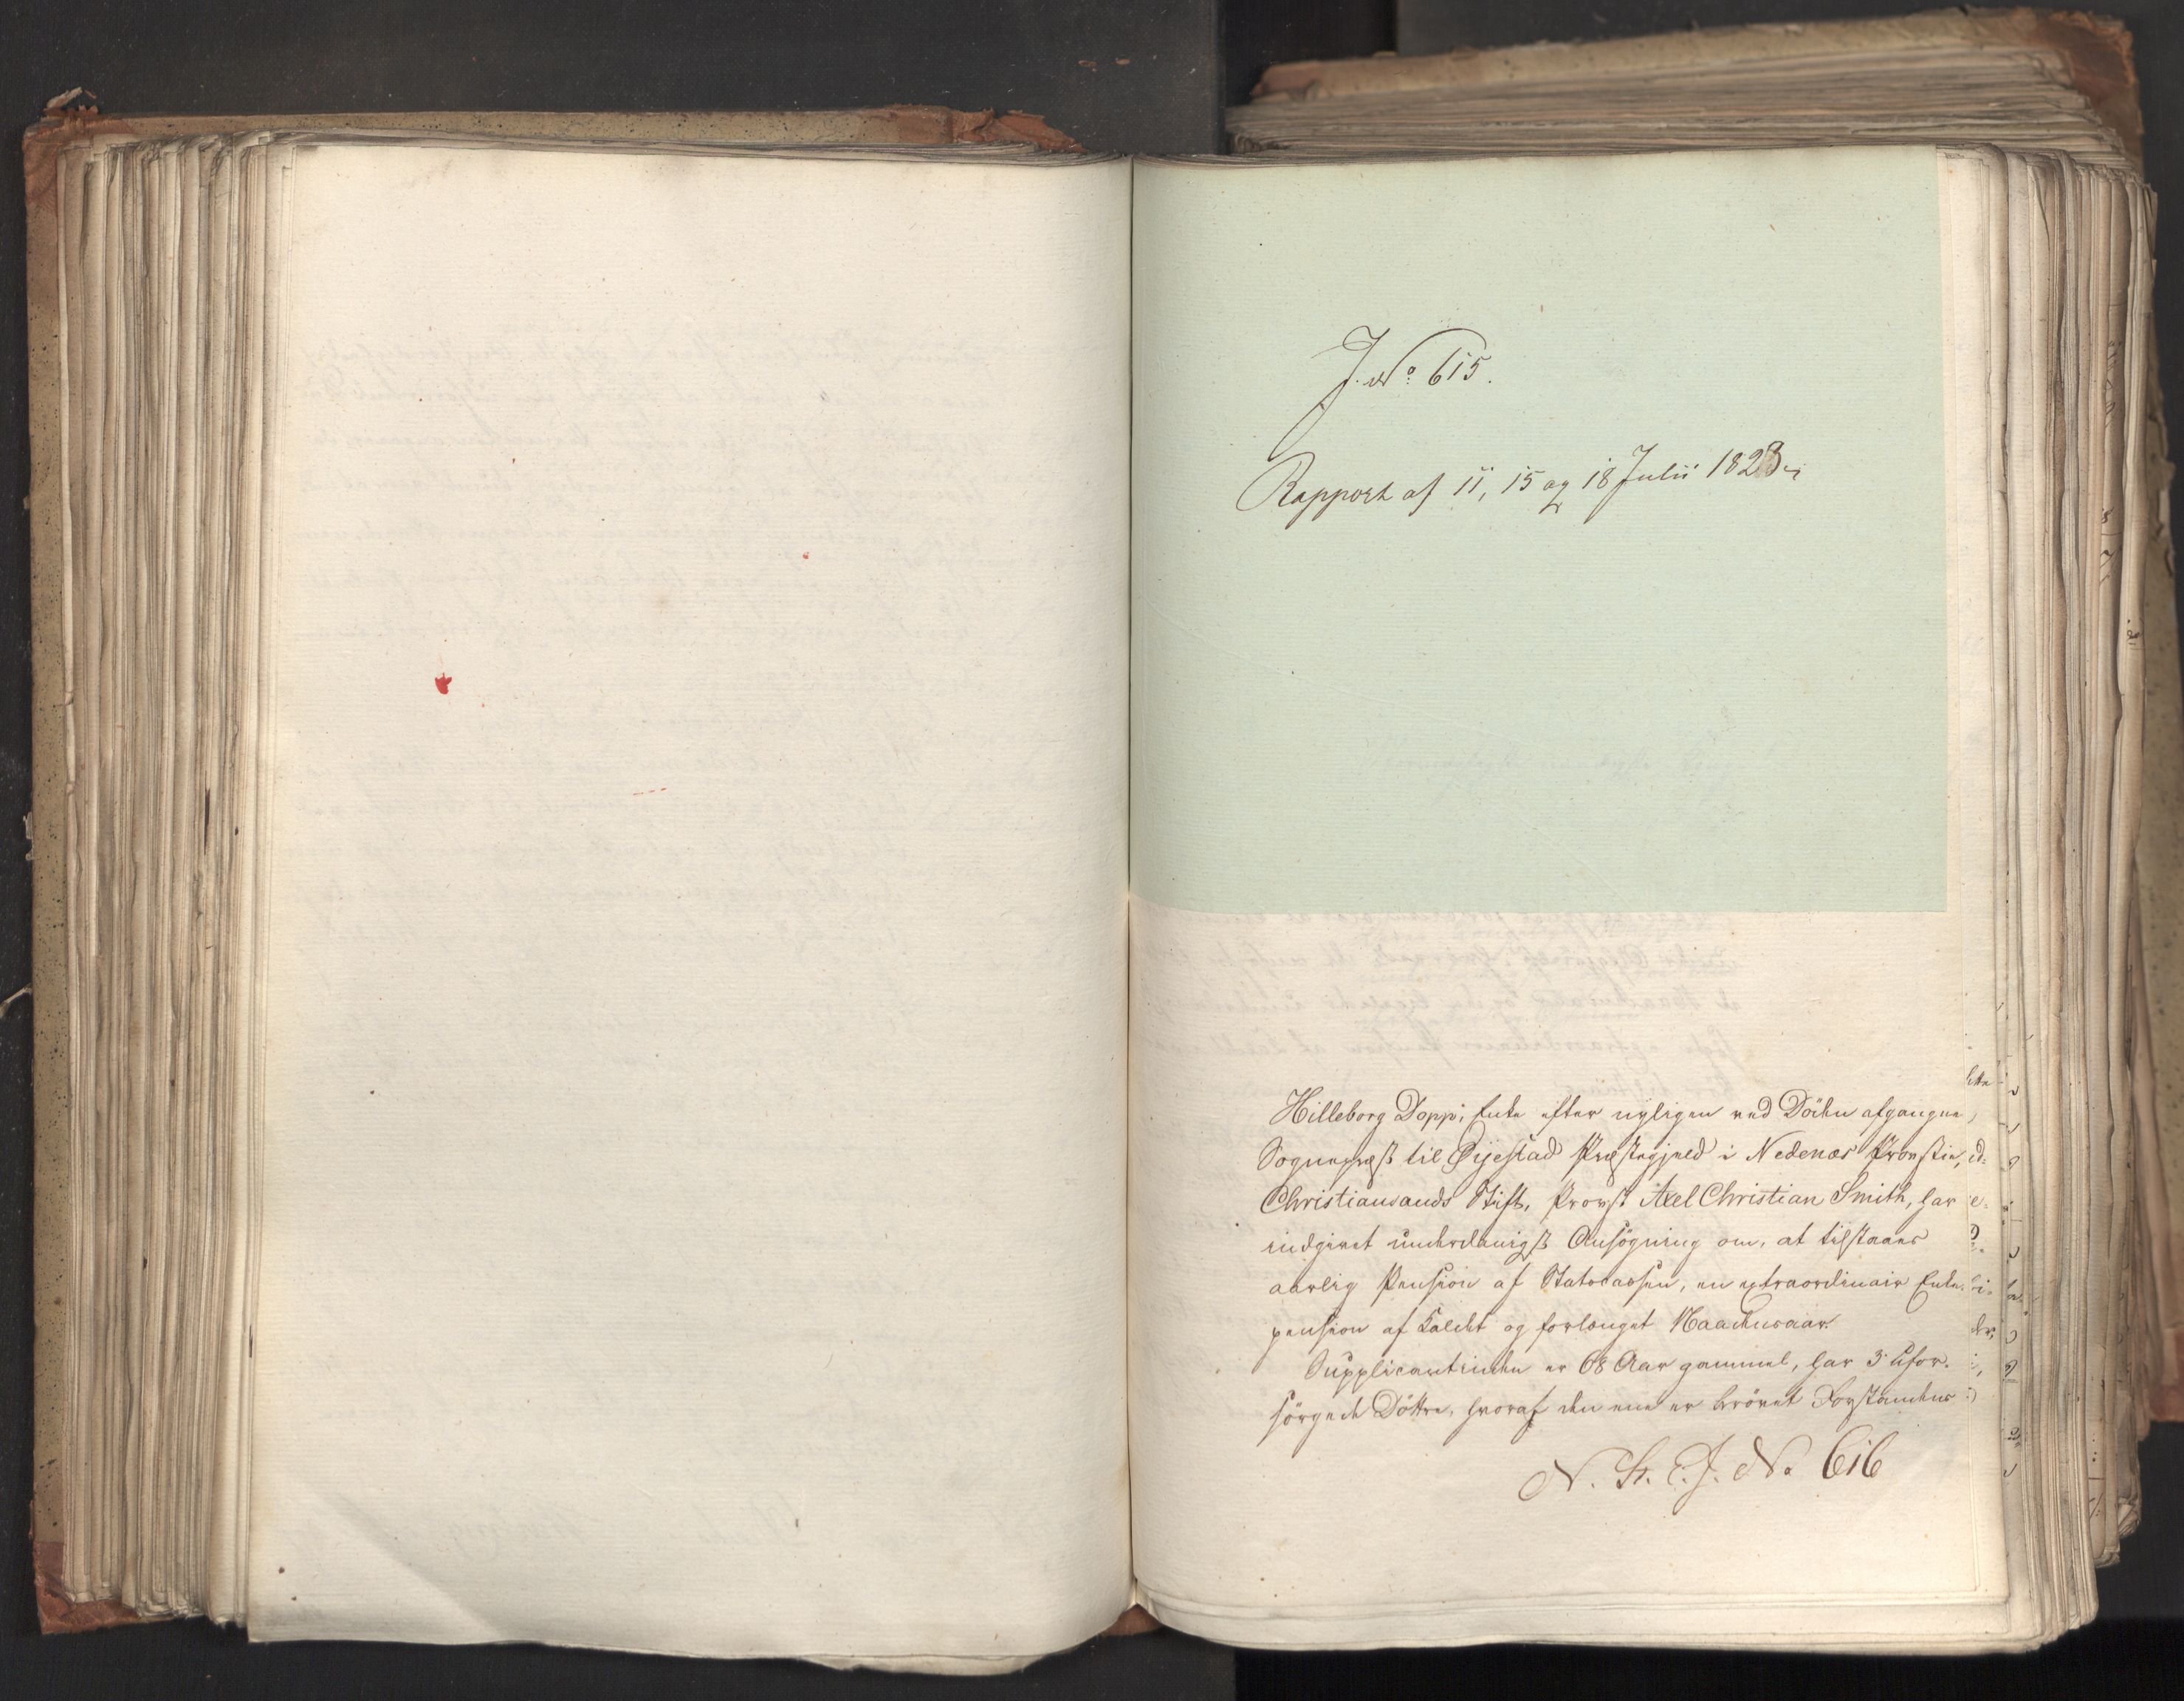 J. No 615.
Rapport af 11, 15 og 18 Julii 1823
Hilleborg Dopp, Enke efter nyligen ved Döden afgangne
Sognepræst til Øijestad Præstegjeld i Nedenæs Provstie,
Christiansands Stift, Provst Axel Christian Smith, har
indgivet underdanigst Ansögning om, at tilstaaes
aarlig Pension af Statscassen, en extraordinair Enke-
pension af Kaldet og forlænget Naadensaar.
Supplicantinden er 68 Aar gammel, har 3 Ufor-
sörgede Döttre, hvoraf den ene er berövet Forstandens
N. St. E. J. No 616